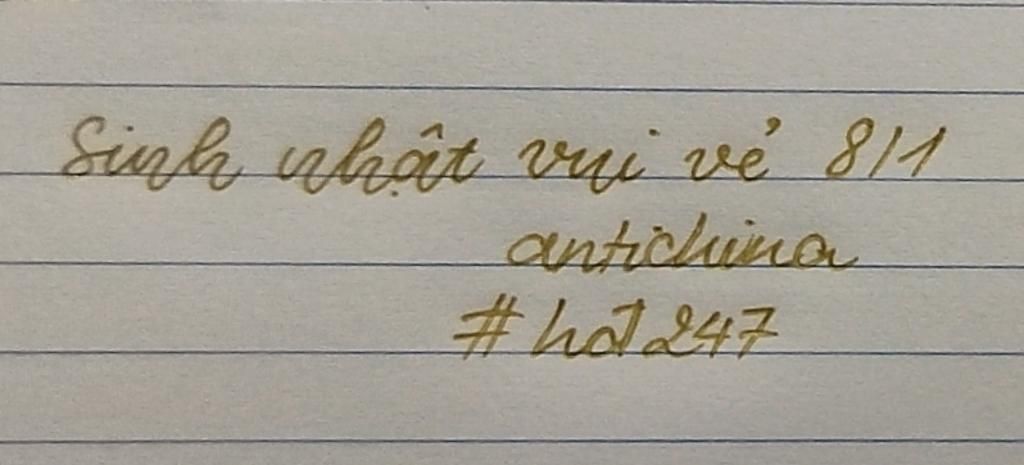 Sinh nhật vui vẻ 8/1
antichina
#hot247